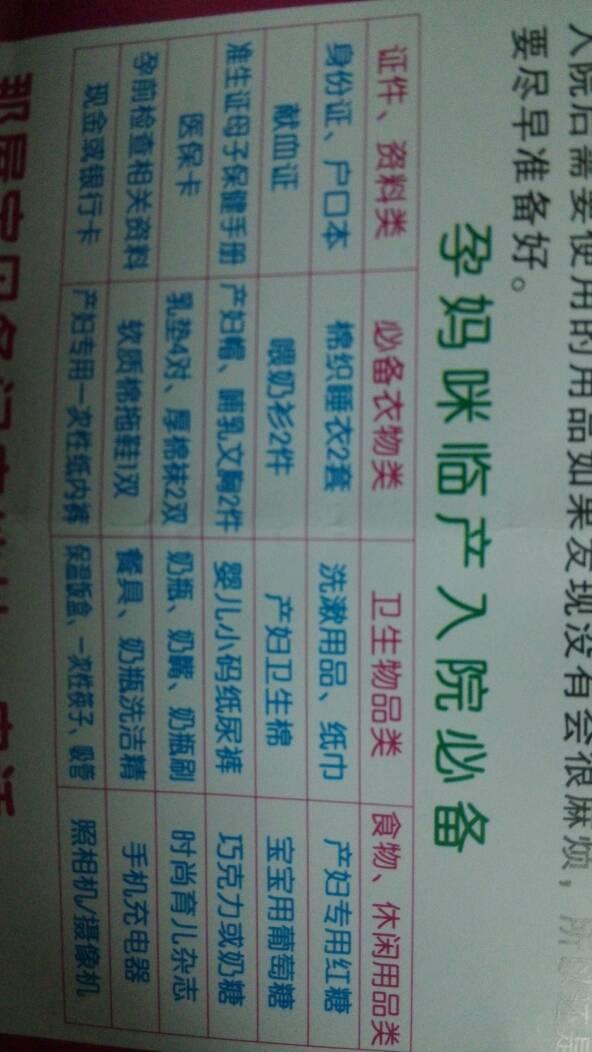 入院后需要使用的用品如果发现没有会很麻烦,
要尽早准备好。
孕妈咪临产入院必备
证件、资料类 必备衣物类 卫生物品类 食物、休闲用品类
身份证、户口本 棉织睡衣2套 洗漱用品、纸巾 产妇专用红糖
献血证 喂奶衫2件 产妇卫生棉 宝宝用葡萄糖
准生证母子保健手册 产妇帽、哺乳文胸2件 婴儿小码纸尿裤 巧克力或奶糖
医保卡 乳垫4对、厚棉袜2双 奶瓶、奶嘴、奶瓶刷 时尚育儿杂志
孕前检查相关资料 软质棉拖鞋1双 餐具、奶瓶洗洁精 手机充电器
现金或银行卡 产妇专用一次性纸内裤 保温饭盒、一次性筷子、吸管 照相机/摄像机